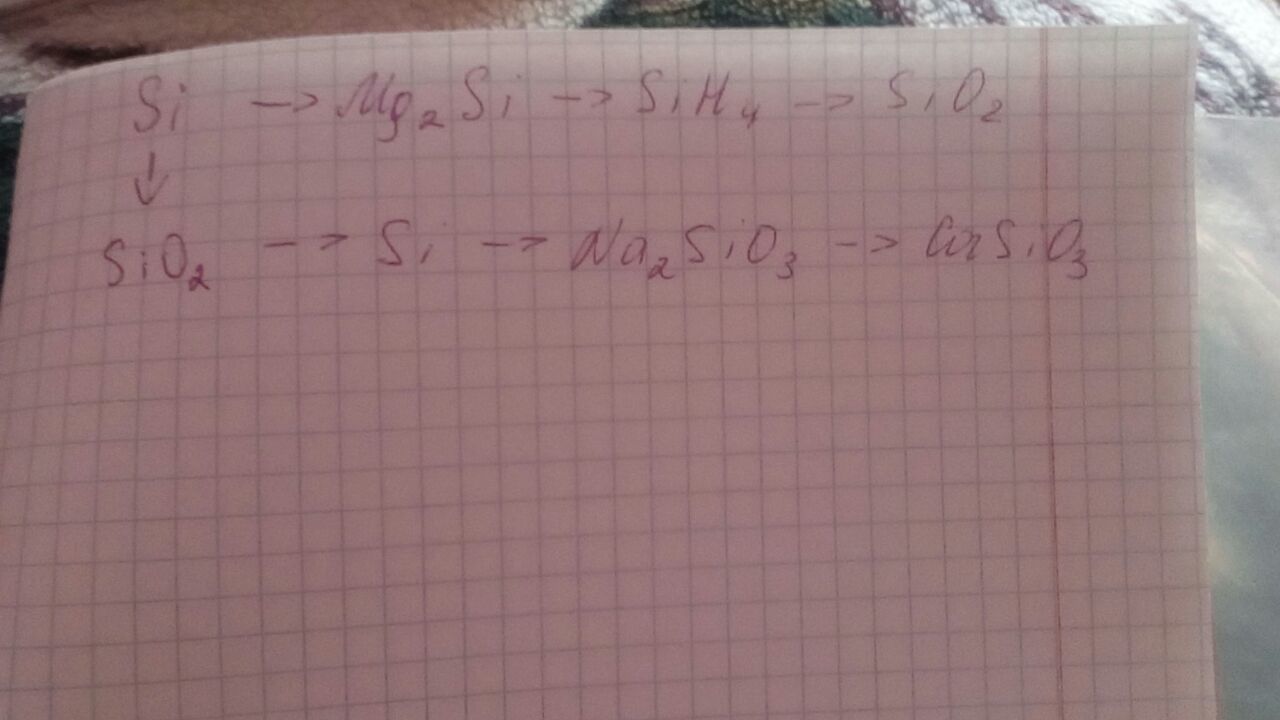 Si -> Mg₂Si -> SiH₄ -> SiO₂
↓
SiO₂ -> Si -> Na₂SiO₃ -> CaSiO₃